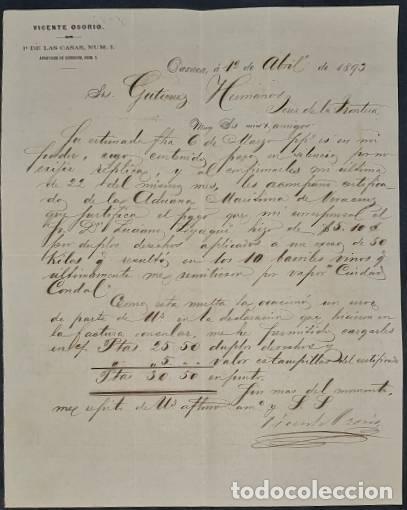 VICENTE OSORIO.
1ª DE LAS CASAS, NUM. 1.
APARTADO DE CORREOS, NUM. 1.
Oaxaca, á 1º de Abril de 1893
Srs. Gutierrez Hermanos
Jerez de la Frontera
Muy Srs mios y amigos
Su estimada fha 6 de Marzo ppº es en mi
poder, cuyo contenido paso en silencio por no
exijir réplica, y al confirmarles mi última
de 22 del mismo mes, les acompaño certifica-
do de la Aduana Maritima de Veracruz
que justifica el pago que mi corresponsal el
Sr Dn Luciano hizo de $5.10 c
por duplos derechos aplicados a un exceso de 50
Kilos q resultó en los 10 barriles vinos q
ultimamente me remitieron por vapor Ciudad
Condal.
Como esta multa la ocasionó un error
de parte de Us en la declaracion que hicieron
en la factura consular, me he permitido cargarles
en c/ Ptas 25.50 duplos derechos y
" 5. - valor estampillas del certificado
Ptas 30.50 en junto.
Sin mas del momento,
me repito de Us afmo amº y S. S.
Vicente Osorio
todocoleccion